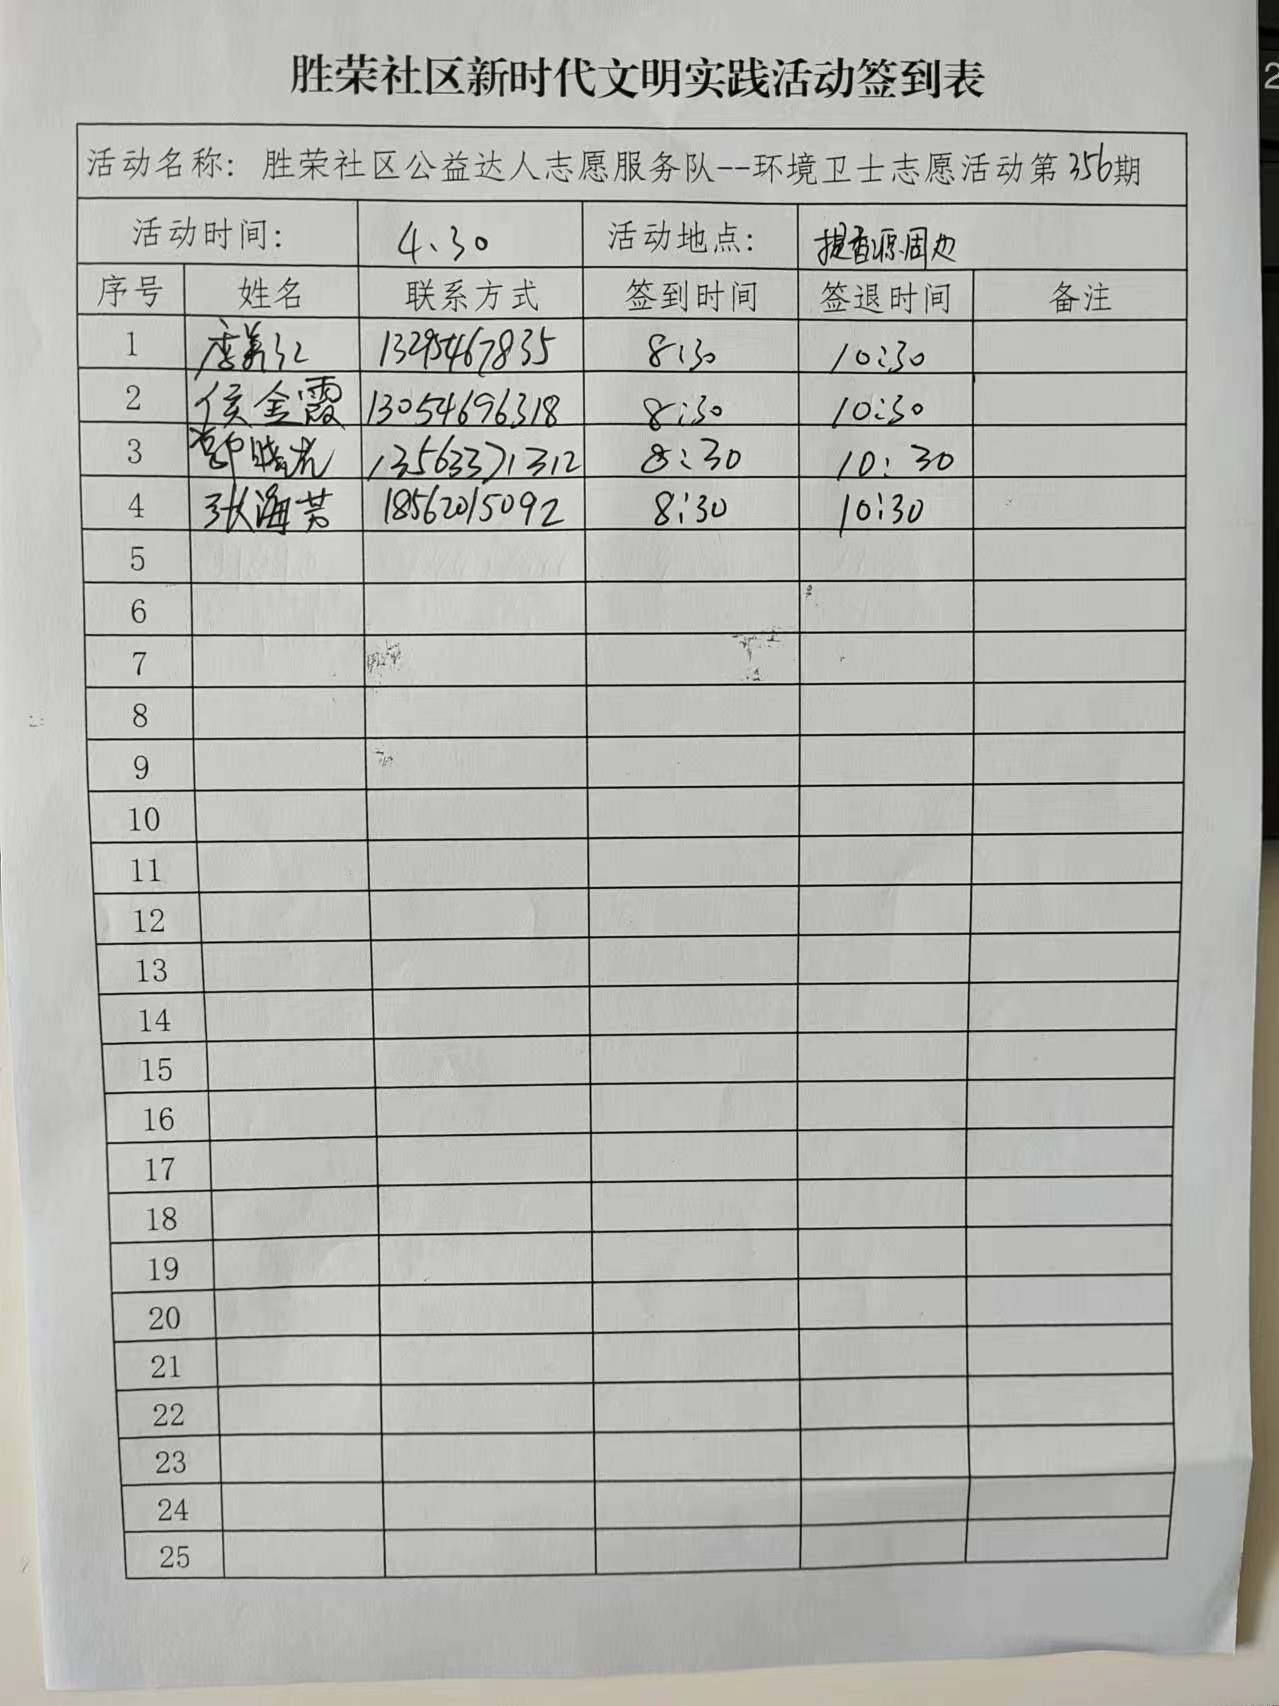 胜荣社区新时代文明实践活动签到表
活动名称: 胜荣社区公益达人志愿服务队--环境卫士志愿活动第356期
活动时间: 4.30 活动地点: 提香源周边
序号 姓名 联系方式 签到时间 签退时间 备注
1 李美红 13295467835 8:30 10:30
2 侯金霞 13054696318 8:30 10:30
3 郭晓 13563371312 8:30 10:30
4 张海芳 18562015092 8:30 10:30
5
6
7
8
9
10
11
12
13
14
15
16
17
18
19
20
21
22
23
24
25